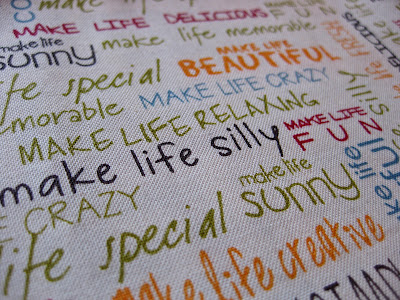 make life
MAKE LIFE DELICIOUS
make life
sunny
make life memorable
MAKE LIFE
BEAUTIFUL
life special
MAKE LIFE CRAZY
memorable
MAKE LIFE RELAXING
make life silly
MAKE LIFE
FUN
silly
CRAZY
make life
sunny
life special
make life creative